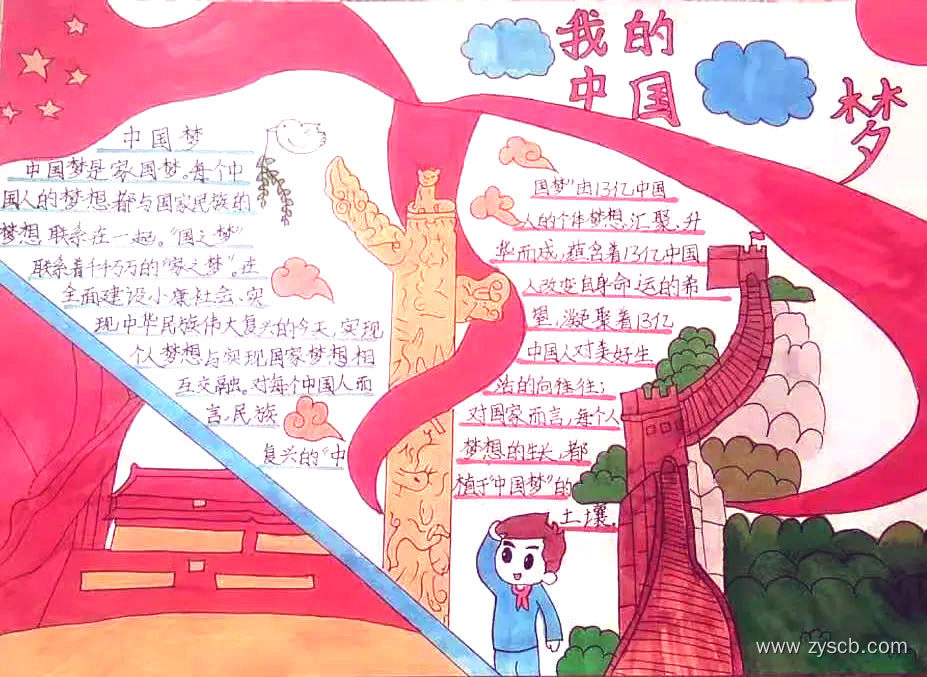 我的
中国
梦
中国梦
中国梦是家、国梦。每个中
国人的梦想都与国家民族的
梦想联系在一起。“国之梦”
联系着千千万万的“家之梦”。在
全面建设小康社会、实
现中华民族伟大复兴的今天,实现
个人梦想与实现国家梦想相
互交融。对每个中国人而
言,民族
复兴的“中
国梦”由13亿中国
人的个体梦想汇聚、升
华而成,蕴含着13亿中国
人改变自身命运的希
望,凝聚着13亿
中国人对美好生
活的向往往;
对国家而言,每个人
梦想的生长,都
植于“中国梦”的
土壤。
www.zyscb.com